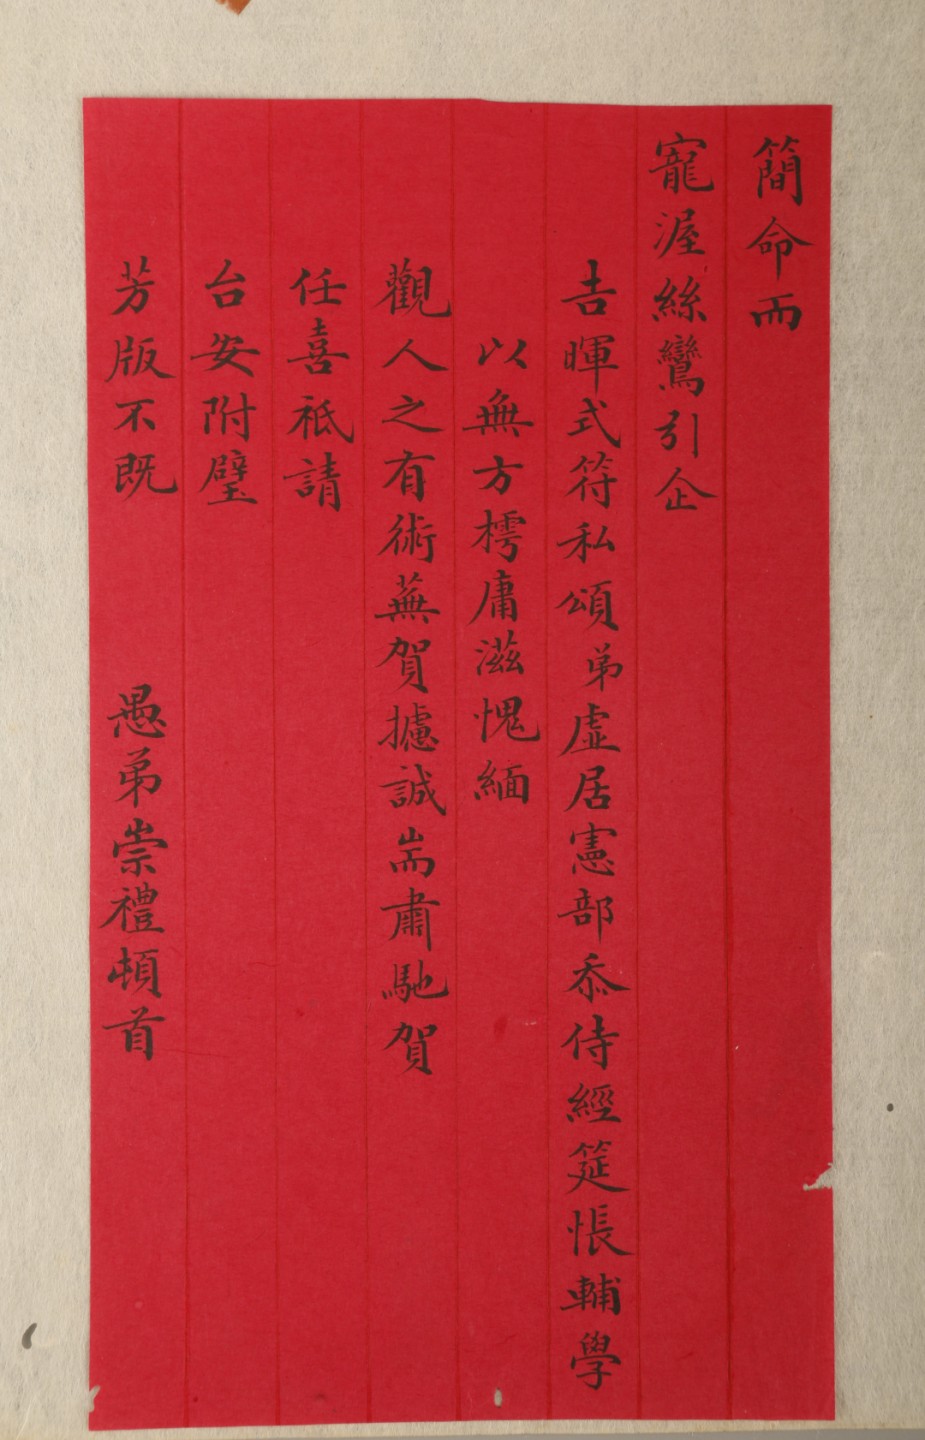 簡命而
寵渥絲鸞引企
吉暉式符私頌弟虛居憲部忝侍經筵悵輔學
以無方樗庸滋愧緬
觀人之有術蕪賀攄誠耑肅馳賀
任喜祗請
台安附璧
芳版不既　愚弟崇禮頓首